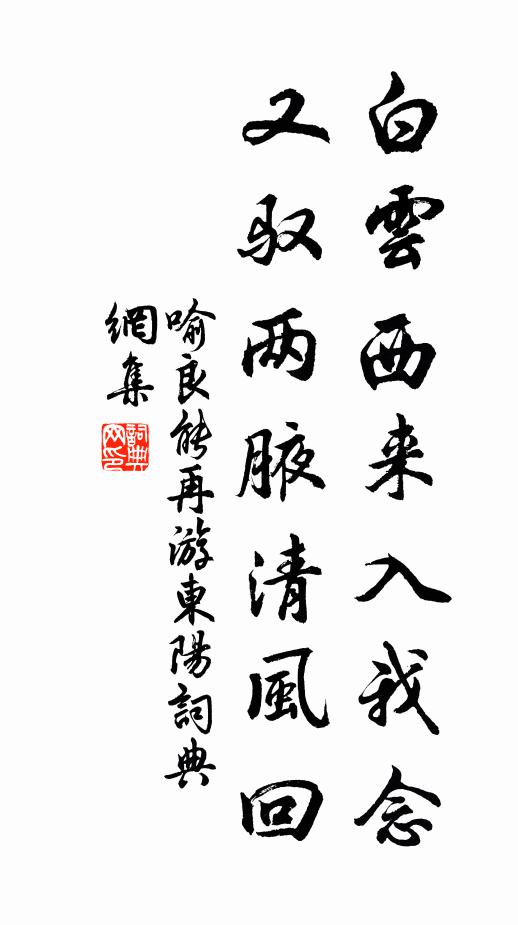 白雲西来入我念
又驭两腋清風回
喻良能再游東陽詞典
網集
詞典
网印